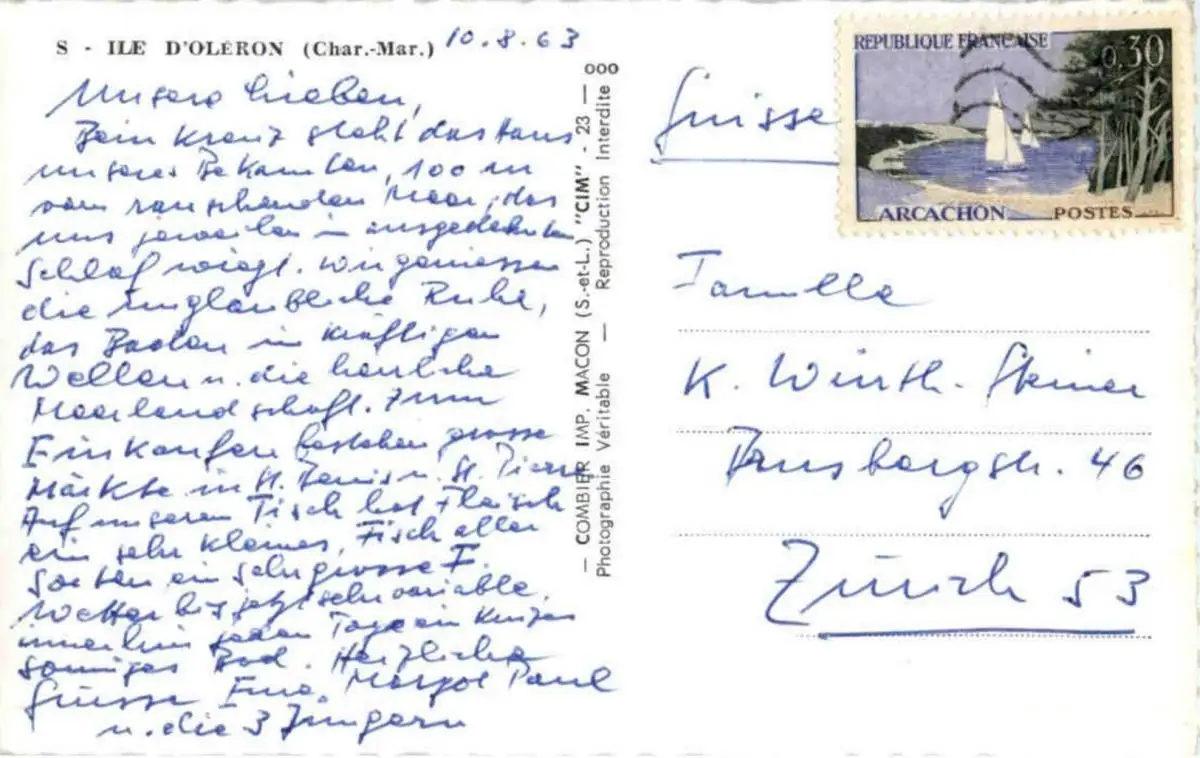 S - ILE D'OLÉRON (Char.-Mar.) 10.8.63
Unsere Lieben,
Beim Kreuz steht das Haus
unserer Bekannten, 100 m
vom rauschenden Meer, das
uns jeweilen in ausgedehnten
Schlaf wiegt. Wir geniessen
die unglaubliche Ruhe,
das Baden in kräftigen
Wellen u. die herrliche
Meerlandschaft. Zum
Einkaufen bestehen grosse
Märkte in St. Denis u. St. Pierre
Auf unserem Tisch hat Fleisch
ein sehr kleines, Fisch aller
Sorten ein sehr grosses F.
Wetter bis jetzt sehr variable,
immerhin jeden Tag ein kurzes
sonniges Bad. Herzliche
Grüsse Margot Paul
u. die 3 Jüngern
— COMBIER IMP. MACON (S.-et-L.) "CIM" - 23 — 000
Photographie Véritable — Reproduction Interdite
REPUBLIQUE FRANÇAISE
0,30
ARCACHON POSTES
Suisse
Familie
K. Wirth-Steiner
46
Zürich 53